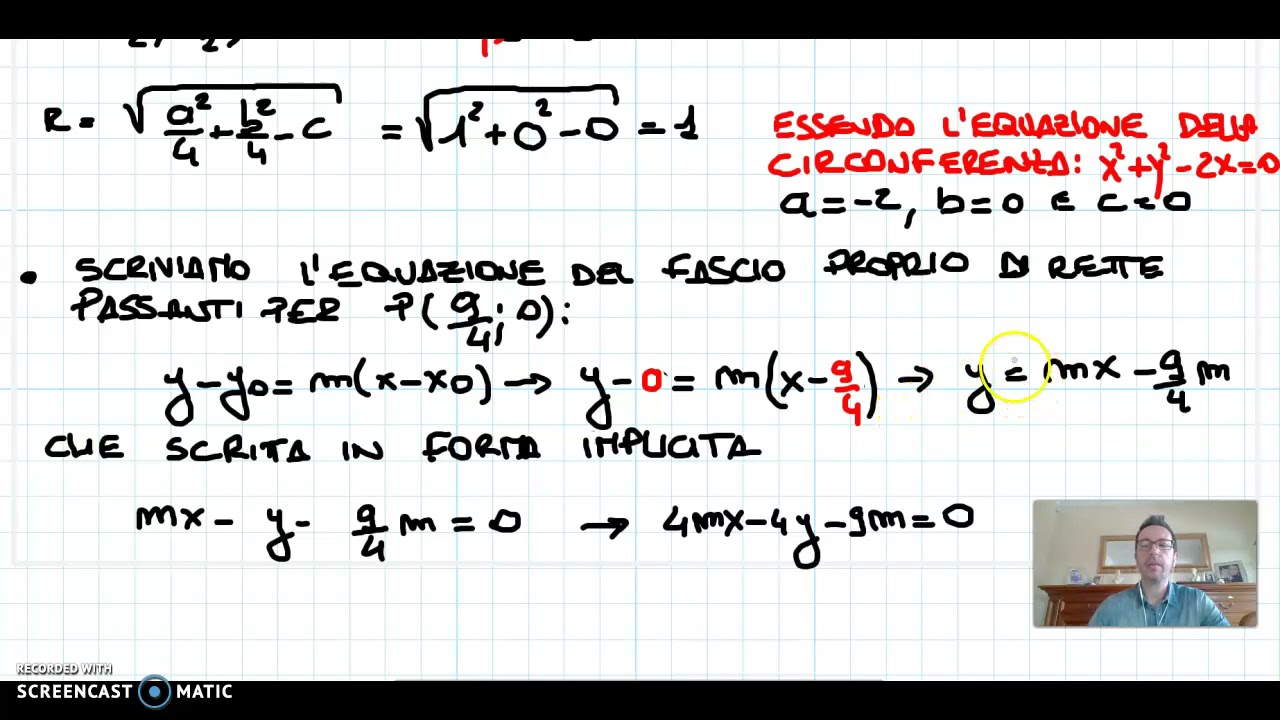 R = √(a²/4 + b²/4 - c) = √(1² + 0² - 0) = 1
ESSENDO L'EQUAZIONE DELLA
CIRCONFERENZA: x² + y² - 2x = 0
a = -2, b = 0 E c = 0
• SCRIVIAMO L'EQUAZIONE DEL FASCIO PROPRIO DI RETTE
PASSANTI PER P(9/4; 0):
y - y0 = m(x - x0) → y - 0 = m(x - 9/4) → y = mx - 9/4 m
CHE SCRITTA IN FORMA IMPLICITA
mx - y - 9/4 m = 0 → 4mx - 4y - 9m = 0
RECORDED WITH
SCREENCAST MATIC